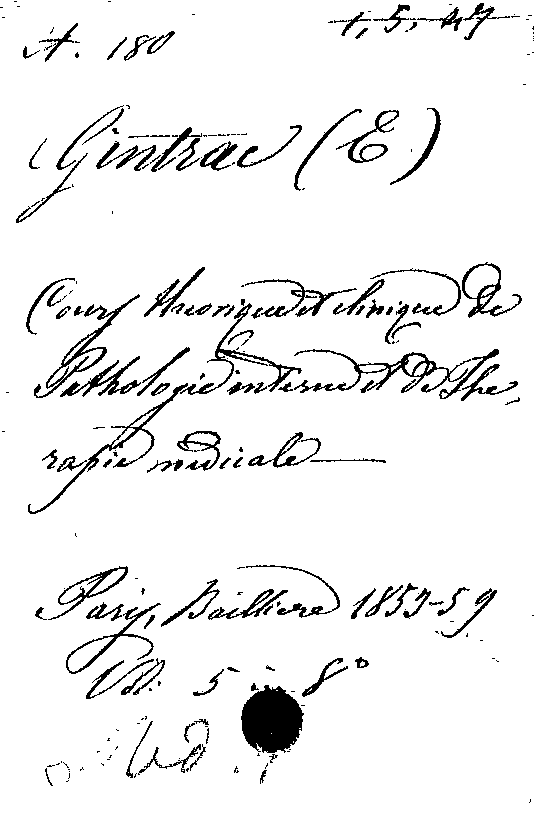 A. 180 1, 5, 47
Gintrac (E)
Cours theorique et clinique de
Pathologie interne et de The-
rapie medicale
Paris, Bailliere 1853-59
Vol. 5 in 8°